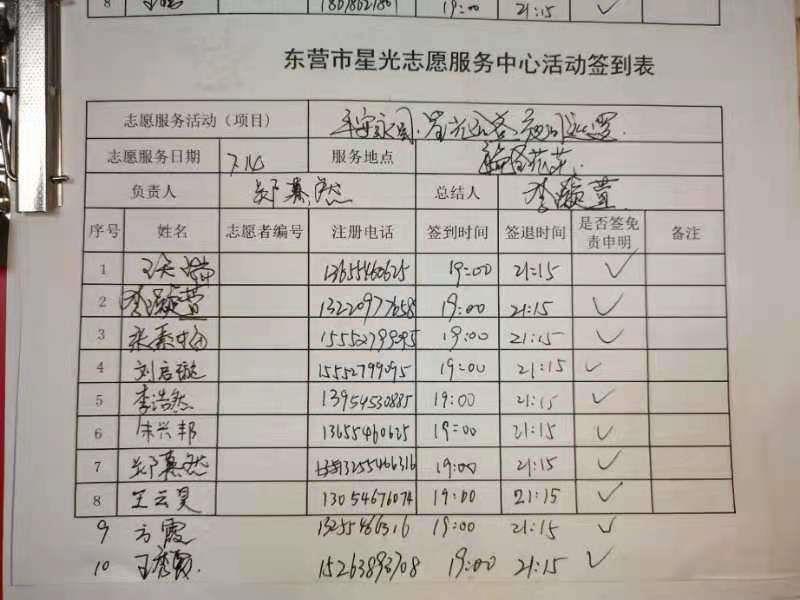 8 19:00 21:15 ✓
东营市星光志愿服务中心活动签到表
志愿服务活动（项目） 平安永固.星光
志愿服务日期 7.14 服务地点
负责人 郑慕然 总结人 李灏萱
序号 姓名 志愿者编号 注册电话 签到时间 签退时间 是否签免责申明 备注
1 13655460625 19:00 21:15 ✓
2 李灏萱 19:00 21:15 ✓
3 15552799095 19:00 21:15 ✓
4 刘启璇 15552799095 19:00 21:15 ✓
5 李浩然 13954530885 19:00 21:15 ✓
6 朱兴邦 13655460625 19:00 21:15 ✓
7 郑慕然 13255466316 19:00 21:15 ✓
8 王云昊 13054676074 19:00 21:15 ✓
9 方霞 13255466316 19:00 21:15 ✓
10 15263893708 19:00 21:15 ✓